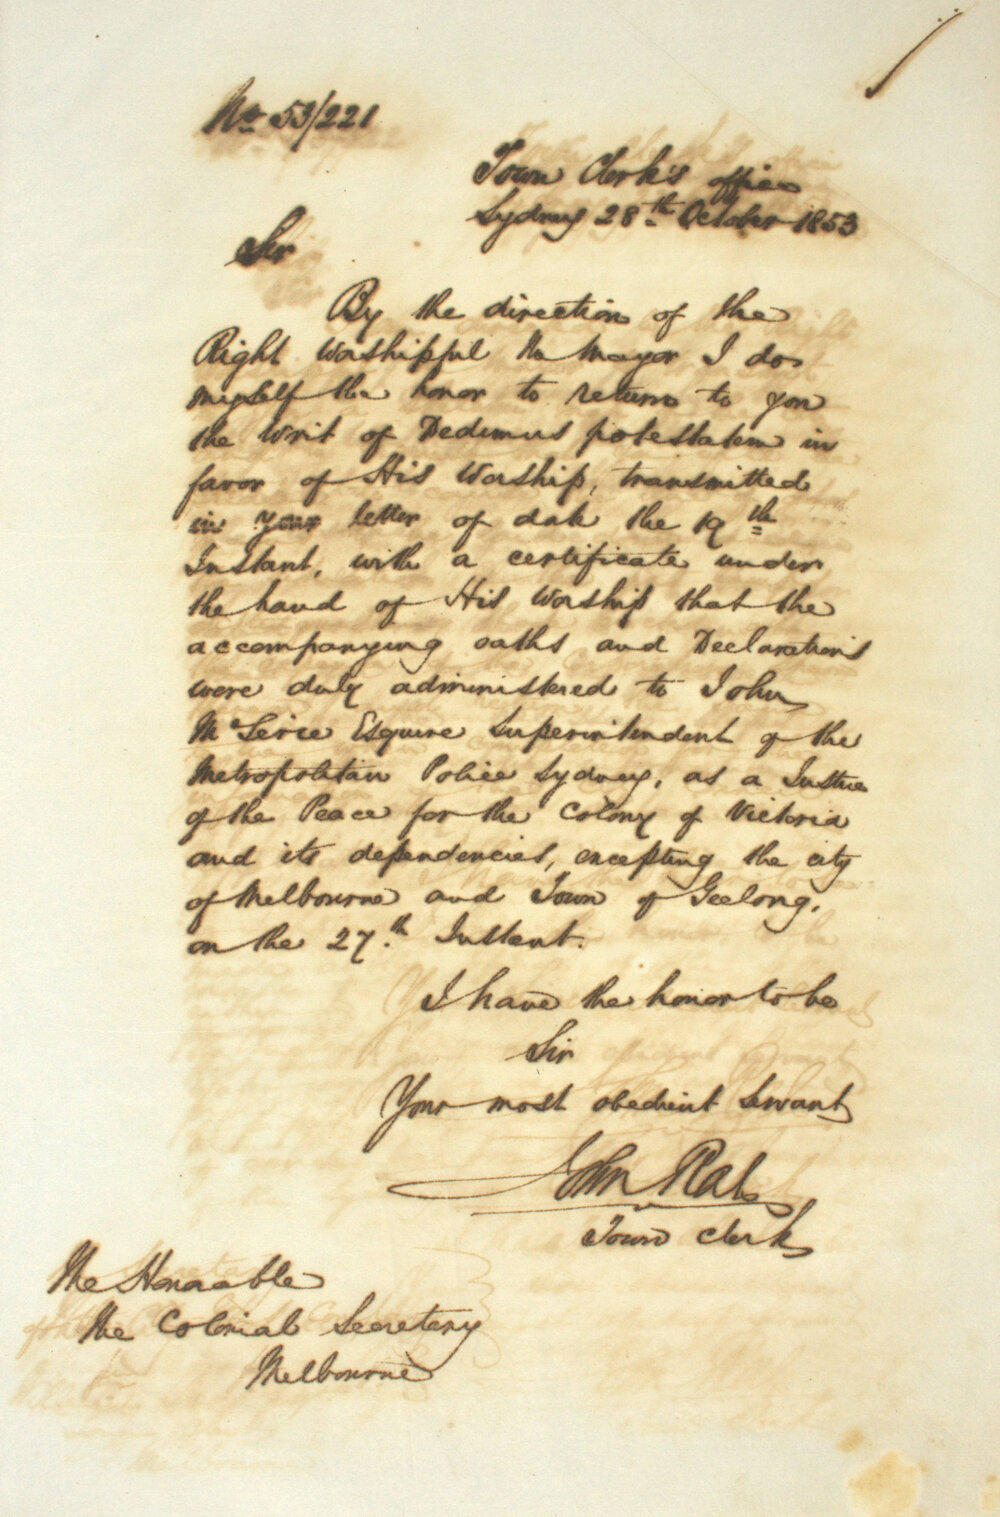 No. 53/221
Town Clerk's office
Sydney 28th October 1853
Sir
By the direction of the
Right Worshipful the Mayor I do
myself the honor to return to you
the Writ of Dedimus potestatem in
favor of His Worship, transmitted
in your letter of date the 19th
Instant, with a certificate under
the hand of His Worship that the
accompanying oaths and Declarations
were duly administered to John
McLerie Esquire Superintendent of the
Metropolitan Police Sydney, as a Justice
of the Peace for the Colony of Victoria
and its dependencies, excepting the city
of Melbourne and Town of Geelong,
on the 27th Instant.
I have the honor to be
Sir
Your most obedient Servant
John Rae
Town Clerk
The Honorable
the Colonial Secretary
Melbourne